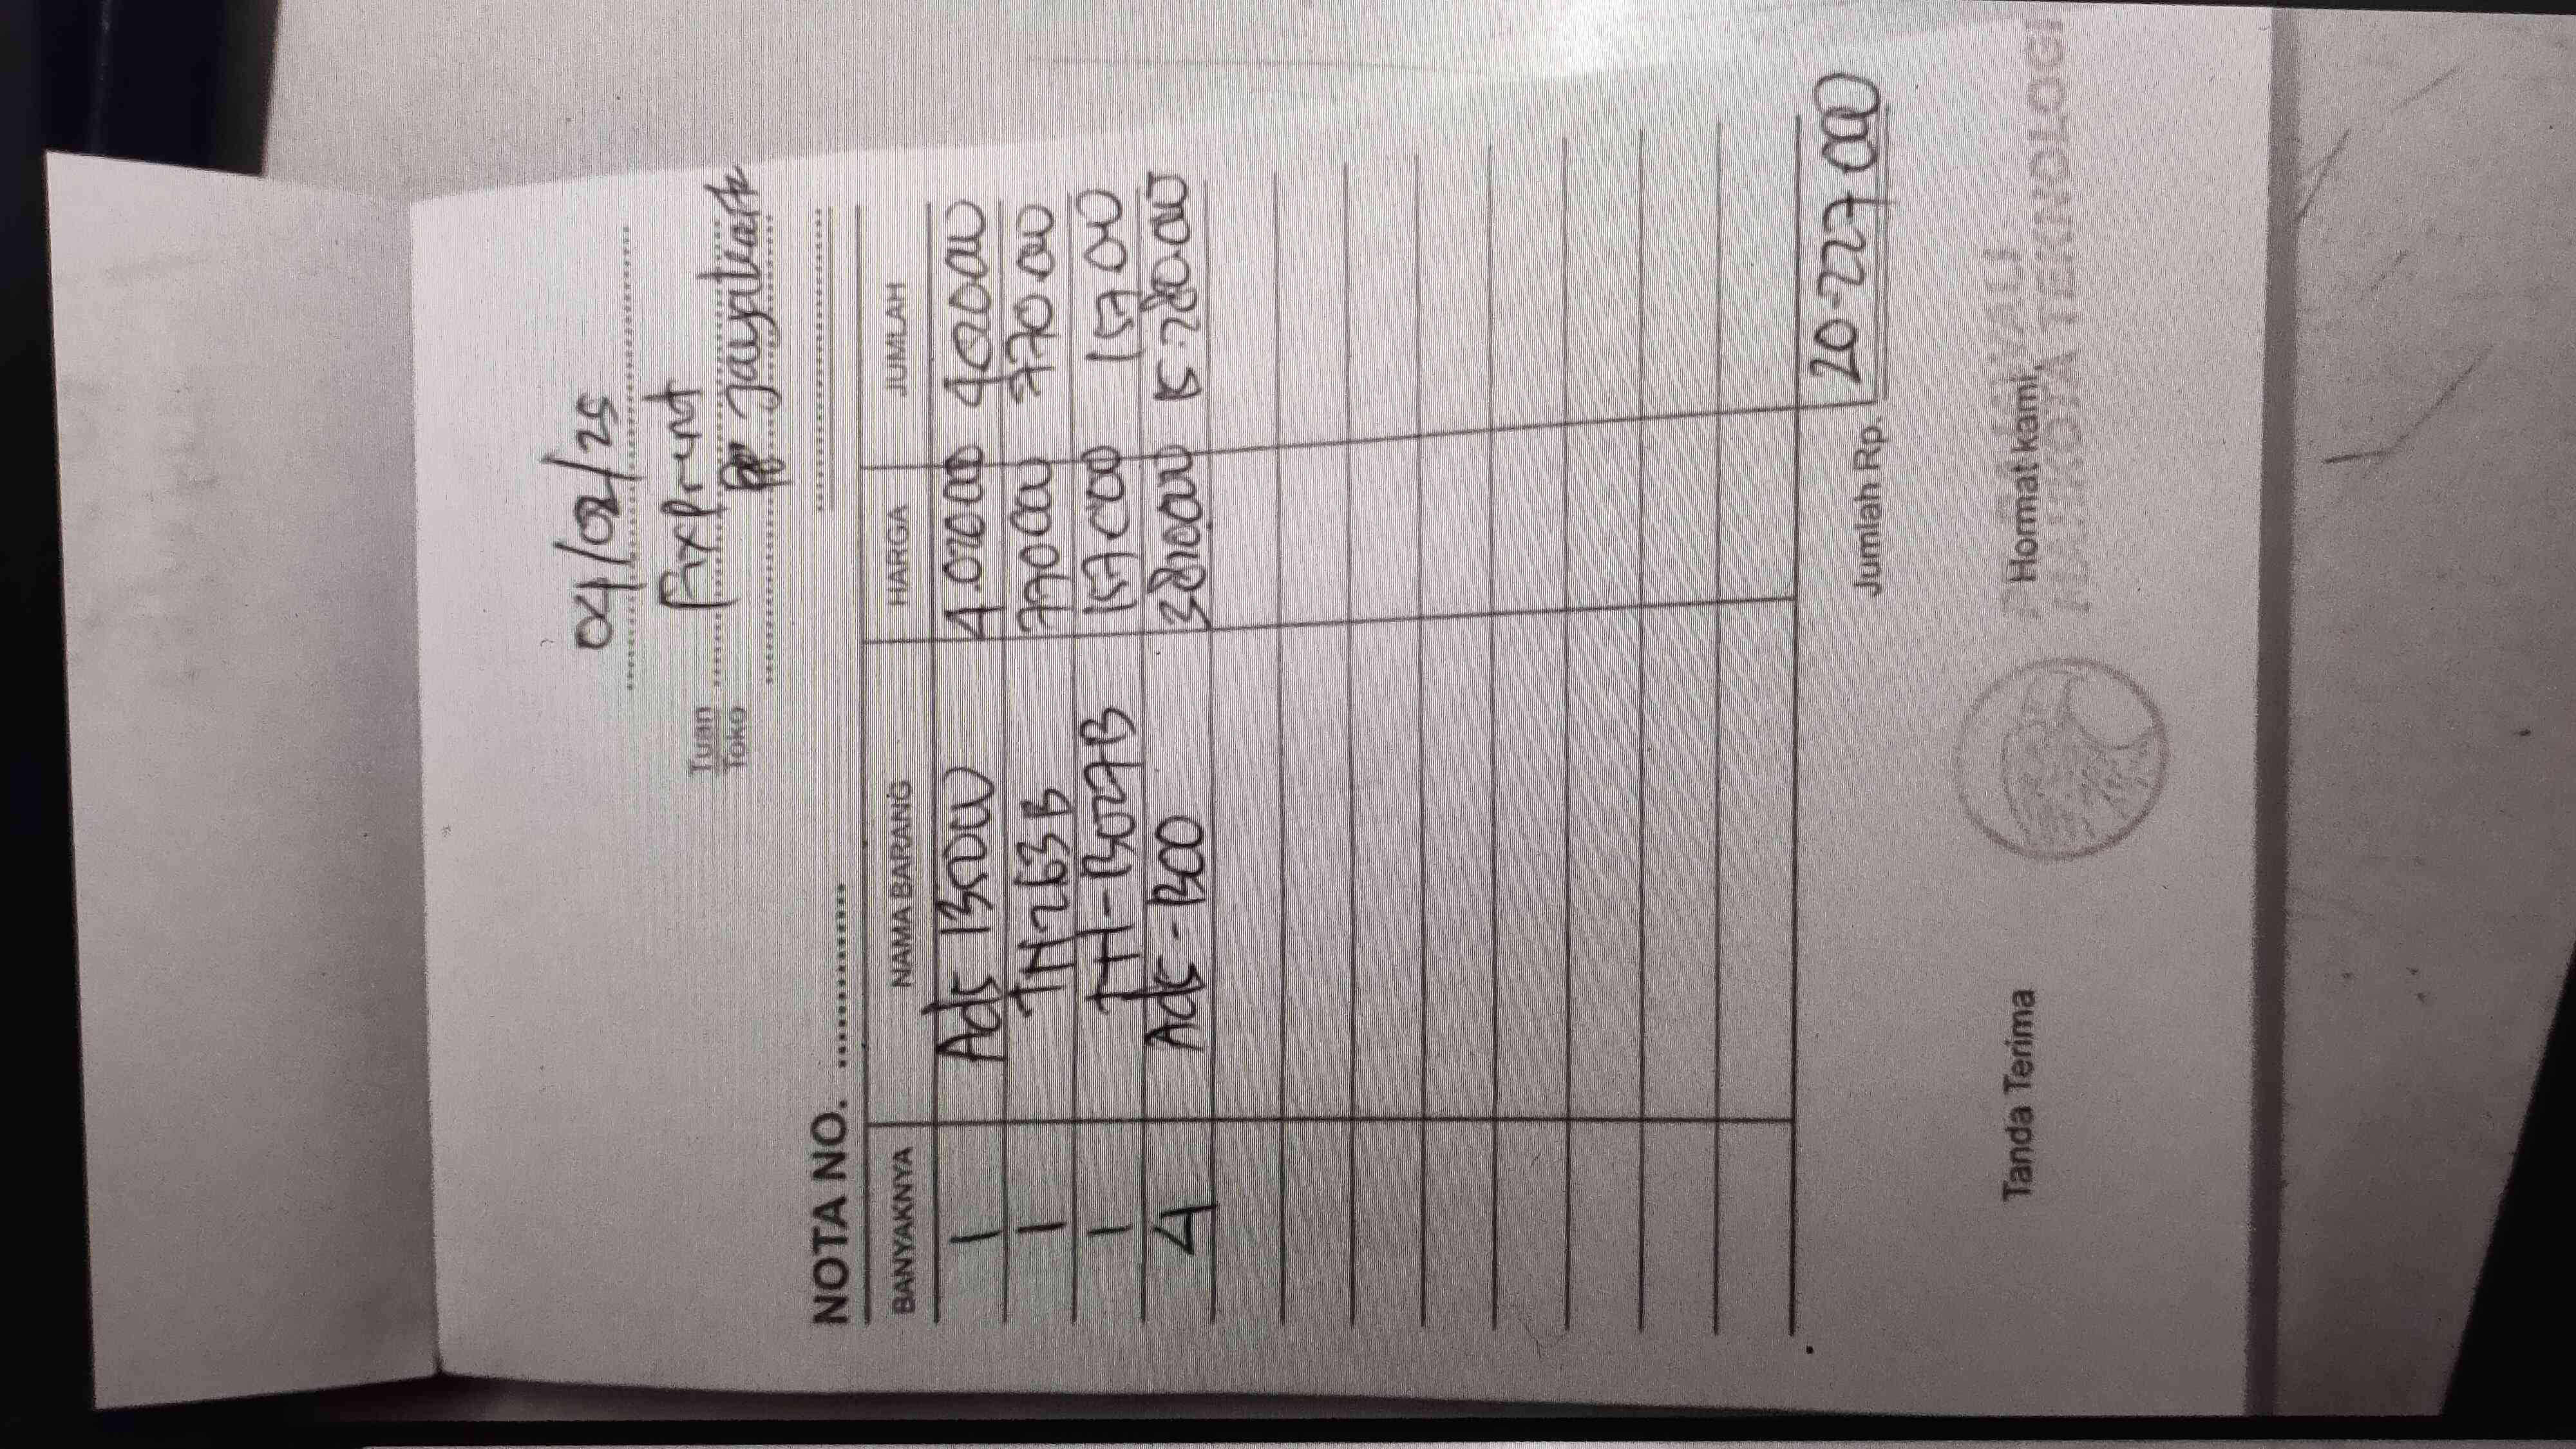 04/02/25
Tuan Fixprint
Toko Jayatech
NOTA NO. ............
BANYAKNYA NAMA BARANG HARGA JUMLAH
1 Ads 1350W 4.020.000 4020.000
1 TN 263 B 770.000 770.000
1 TH-B027B 157.000 157.000
4 Ads-1300 3820.000 15.280.000
Jumlah Rp. 20.227.000
Tanda Terima Hormat kami,
MAHKOTA TEKNOLOGI